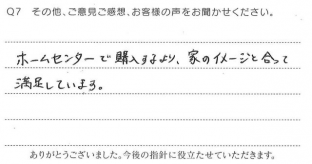 Q7 その他、ご意見ご感想、お客様の声をお聞かせください。
ホームセンターで購入するより、家のイメージと合って
満足しています。
ありがとうございました。今後の指針に役立たせていただきます。